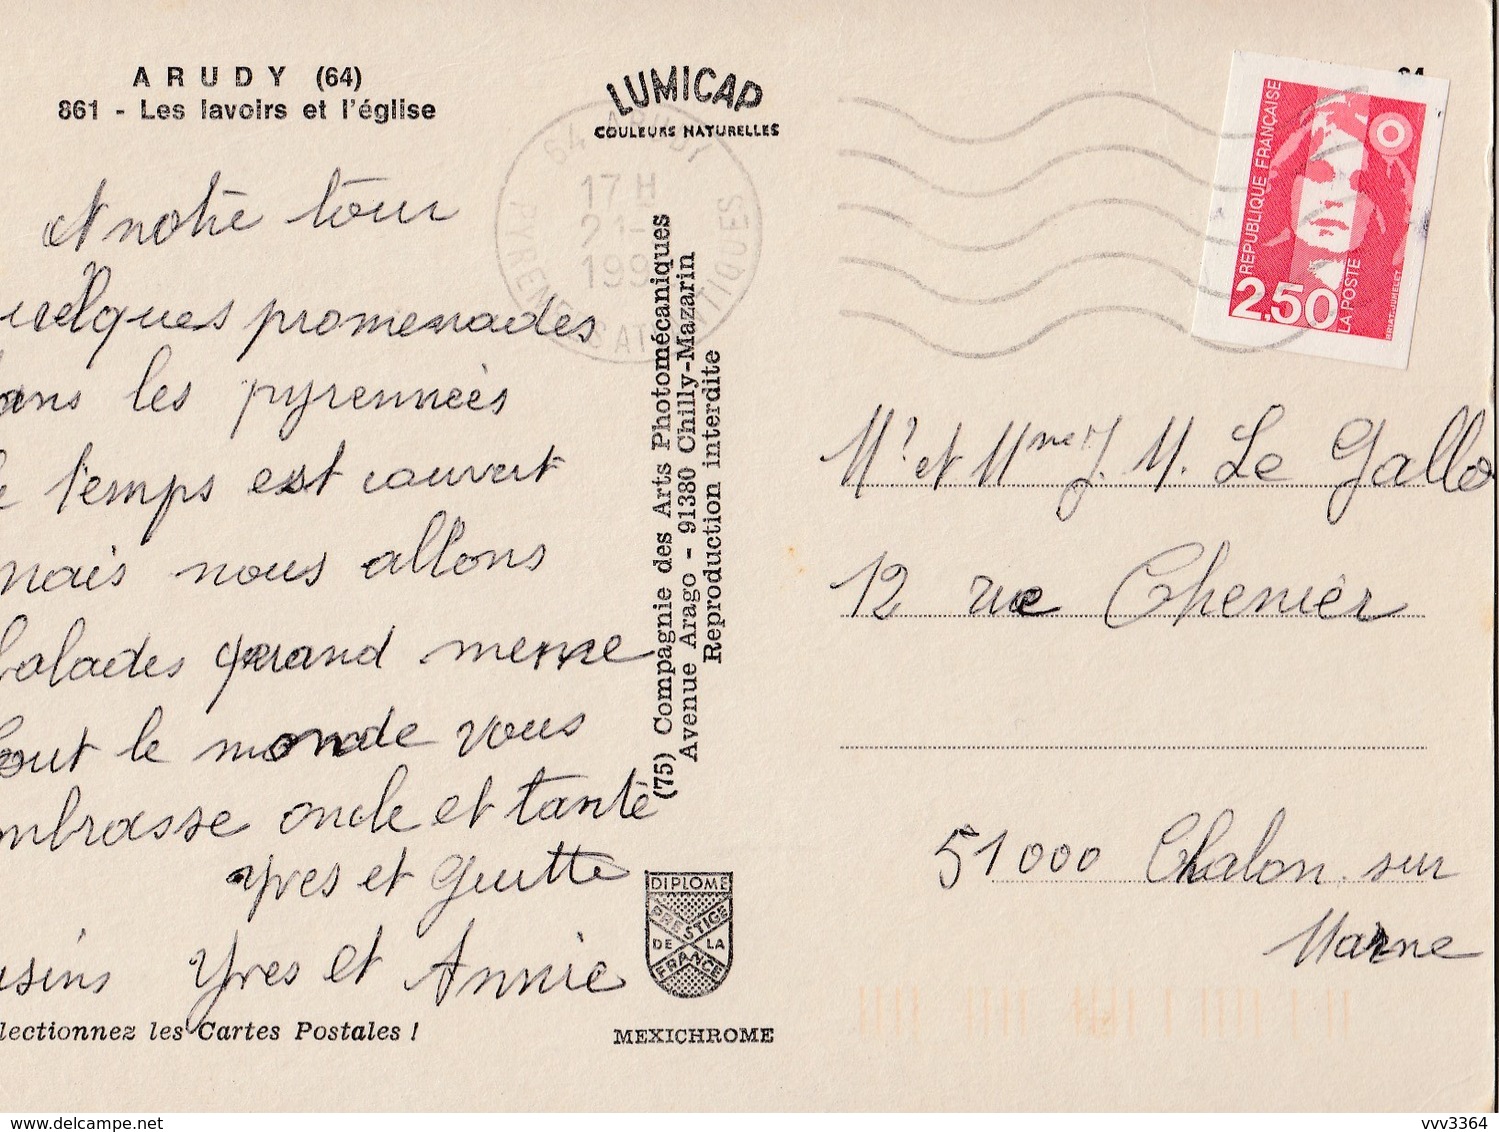 ARUDY (64)
861 - Les lavoirs et l'église
LUMICAP
COULEURS NATURELLES
64 ARUDY
17 H
21-
199
PYRENEES ATLANTIQUES
REPUBLIQUE FRANÇAISE
2,50
LA POSTE
BRIAT-JUMELET
A notre tour
uelques promenades
ans les pyrennées
temps est couvert
mais nous allons
balades quand meme
tout le monde vous
mbrasse oncle et tante
Yves et Guitte
usins Yves et Annie
lectionnez les Cartes Postales !
(75) Compagnie des Arts Photomécaniques
Avenue Arago - 91380 Chilly-Mazarin
Reproduction interdite
DIPLOME
PRESTIGE
DE LA
FRANCE
MEXICHROME
Mr et Mme J. M. Le Gallo
12 rue Chenier
51000 Chalon sur
Marne
vvv3364